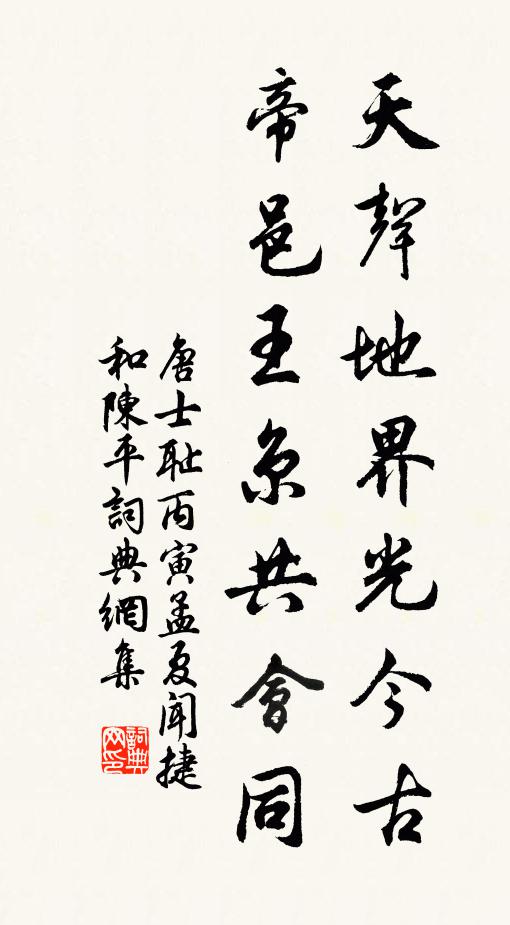 天聲地界光今古
帝邑王京共會同
唐士耻丙寅孟夏聞捷
和陳平詞典網集
詞典
网印